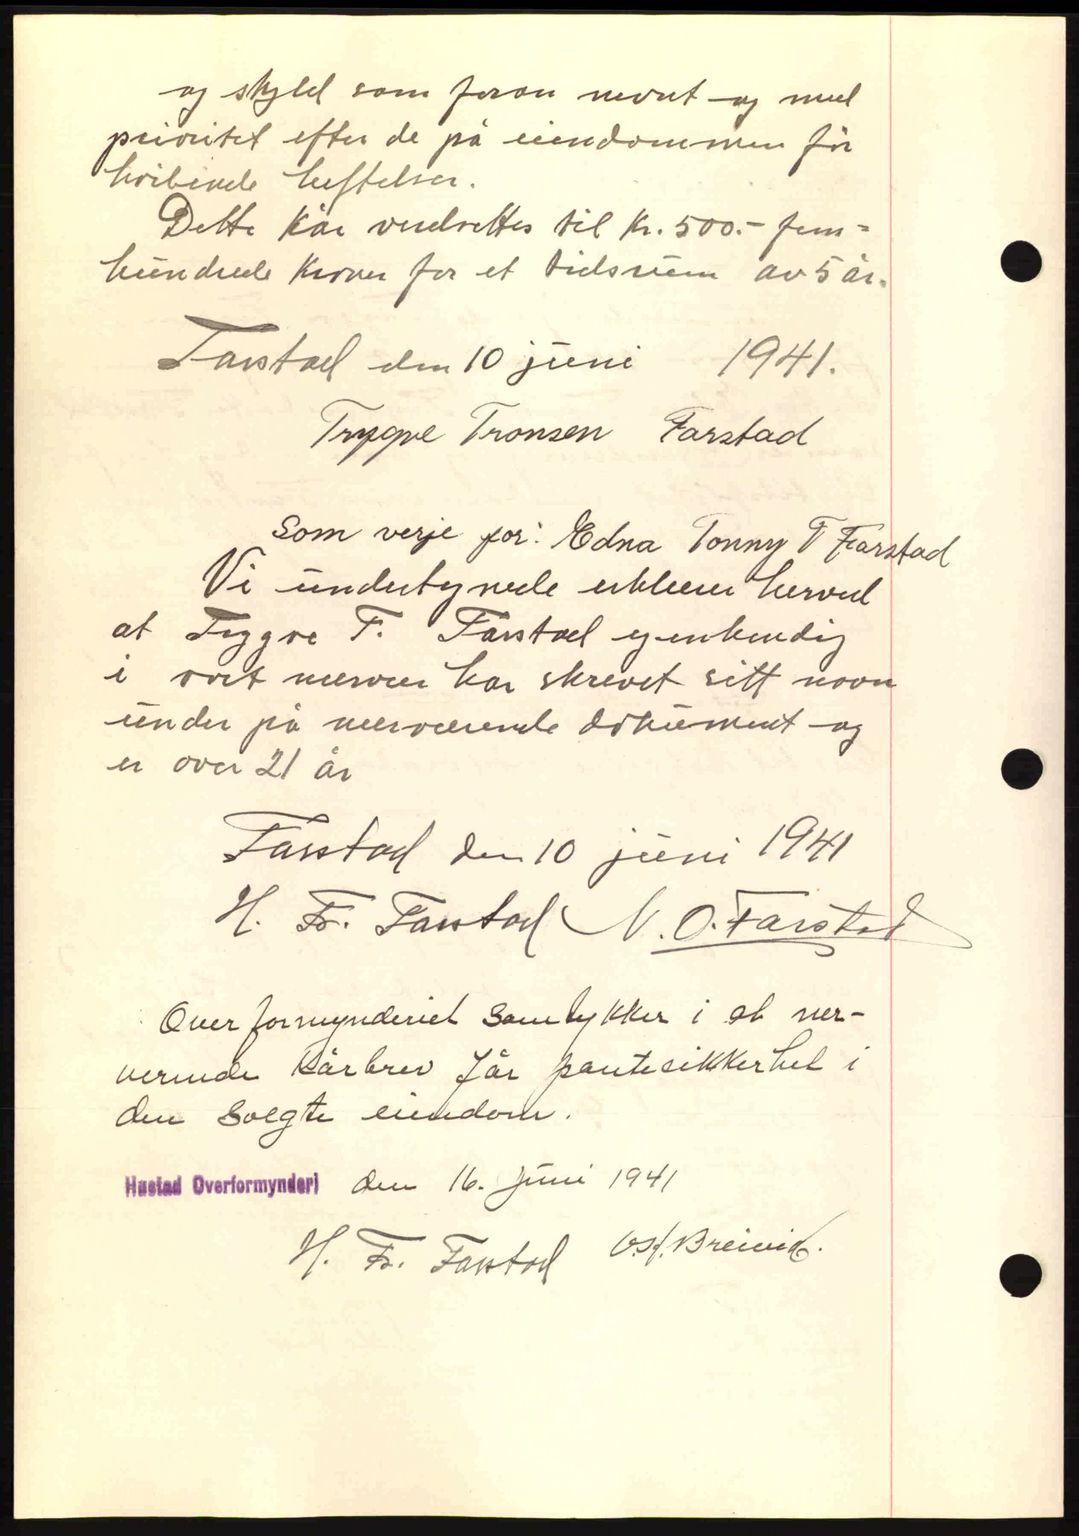 og skyld som foran nevnt og med
prioritet efter de på eiendommen før
hvilende heftelser.
Dette kår verdsettes til kr. 500.- fem=
hundrede kroner for et tidsrum av 5 år.
Farstad den 10 juni 1941.
Trygve Tronsen Farstad
Som verje for: Edna Tonny T Farstad
Vi undertegnede erklærer herved
at Trygve T. Farstad egenhendig
i vort nærvær har skrevet sitt navn
under på nærværende dokument og
er over 21 år
Farstad den 10 juni 1941
H. Fr. Farstad N. O. Farstad
Overformynderiet samtykker i at nær-
verende kårbrev får pantesikkerhet i
den solgte eiendom.
Hustad Overformynderi den 16. juni 1941
H. Fr. Farstad Osf. Breivik.